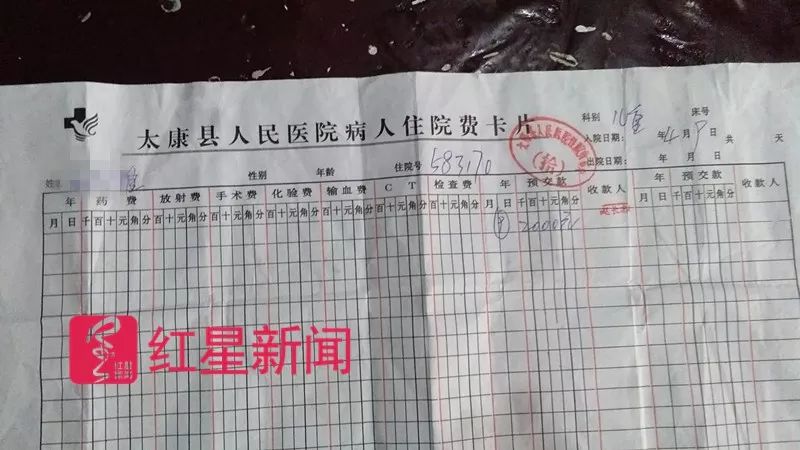 太康县人民医院病人住院费卡片
科别 儿重 床号
入院日期: 年 4月9日 共 天
出院日期: 年 月 日
姓名 性别 年龄 住院号 583170
年 药费 放射费 手术费 化验费 输血费 CT 检查费 年 预交款 收款人 年 预交款 收款人
月 日 千百十元角分 百十元角分 百十元角分 百十元角分 百十元角分 百十元角分 百十元角分 月 日 千百十元角分 月 日 千百十元角分
2000元
红星新闻